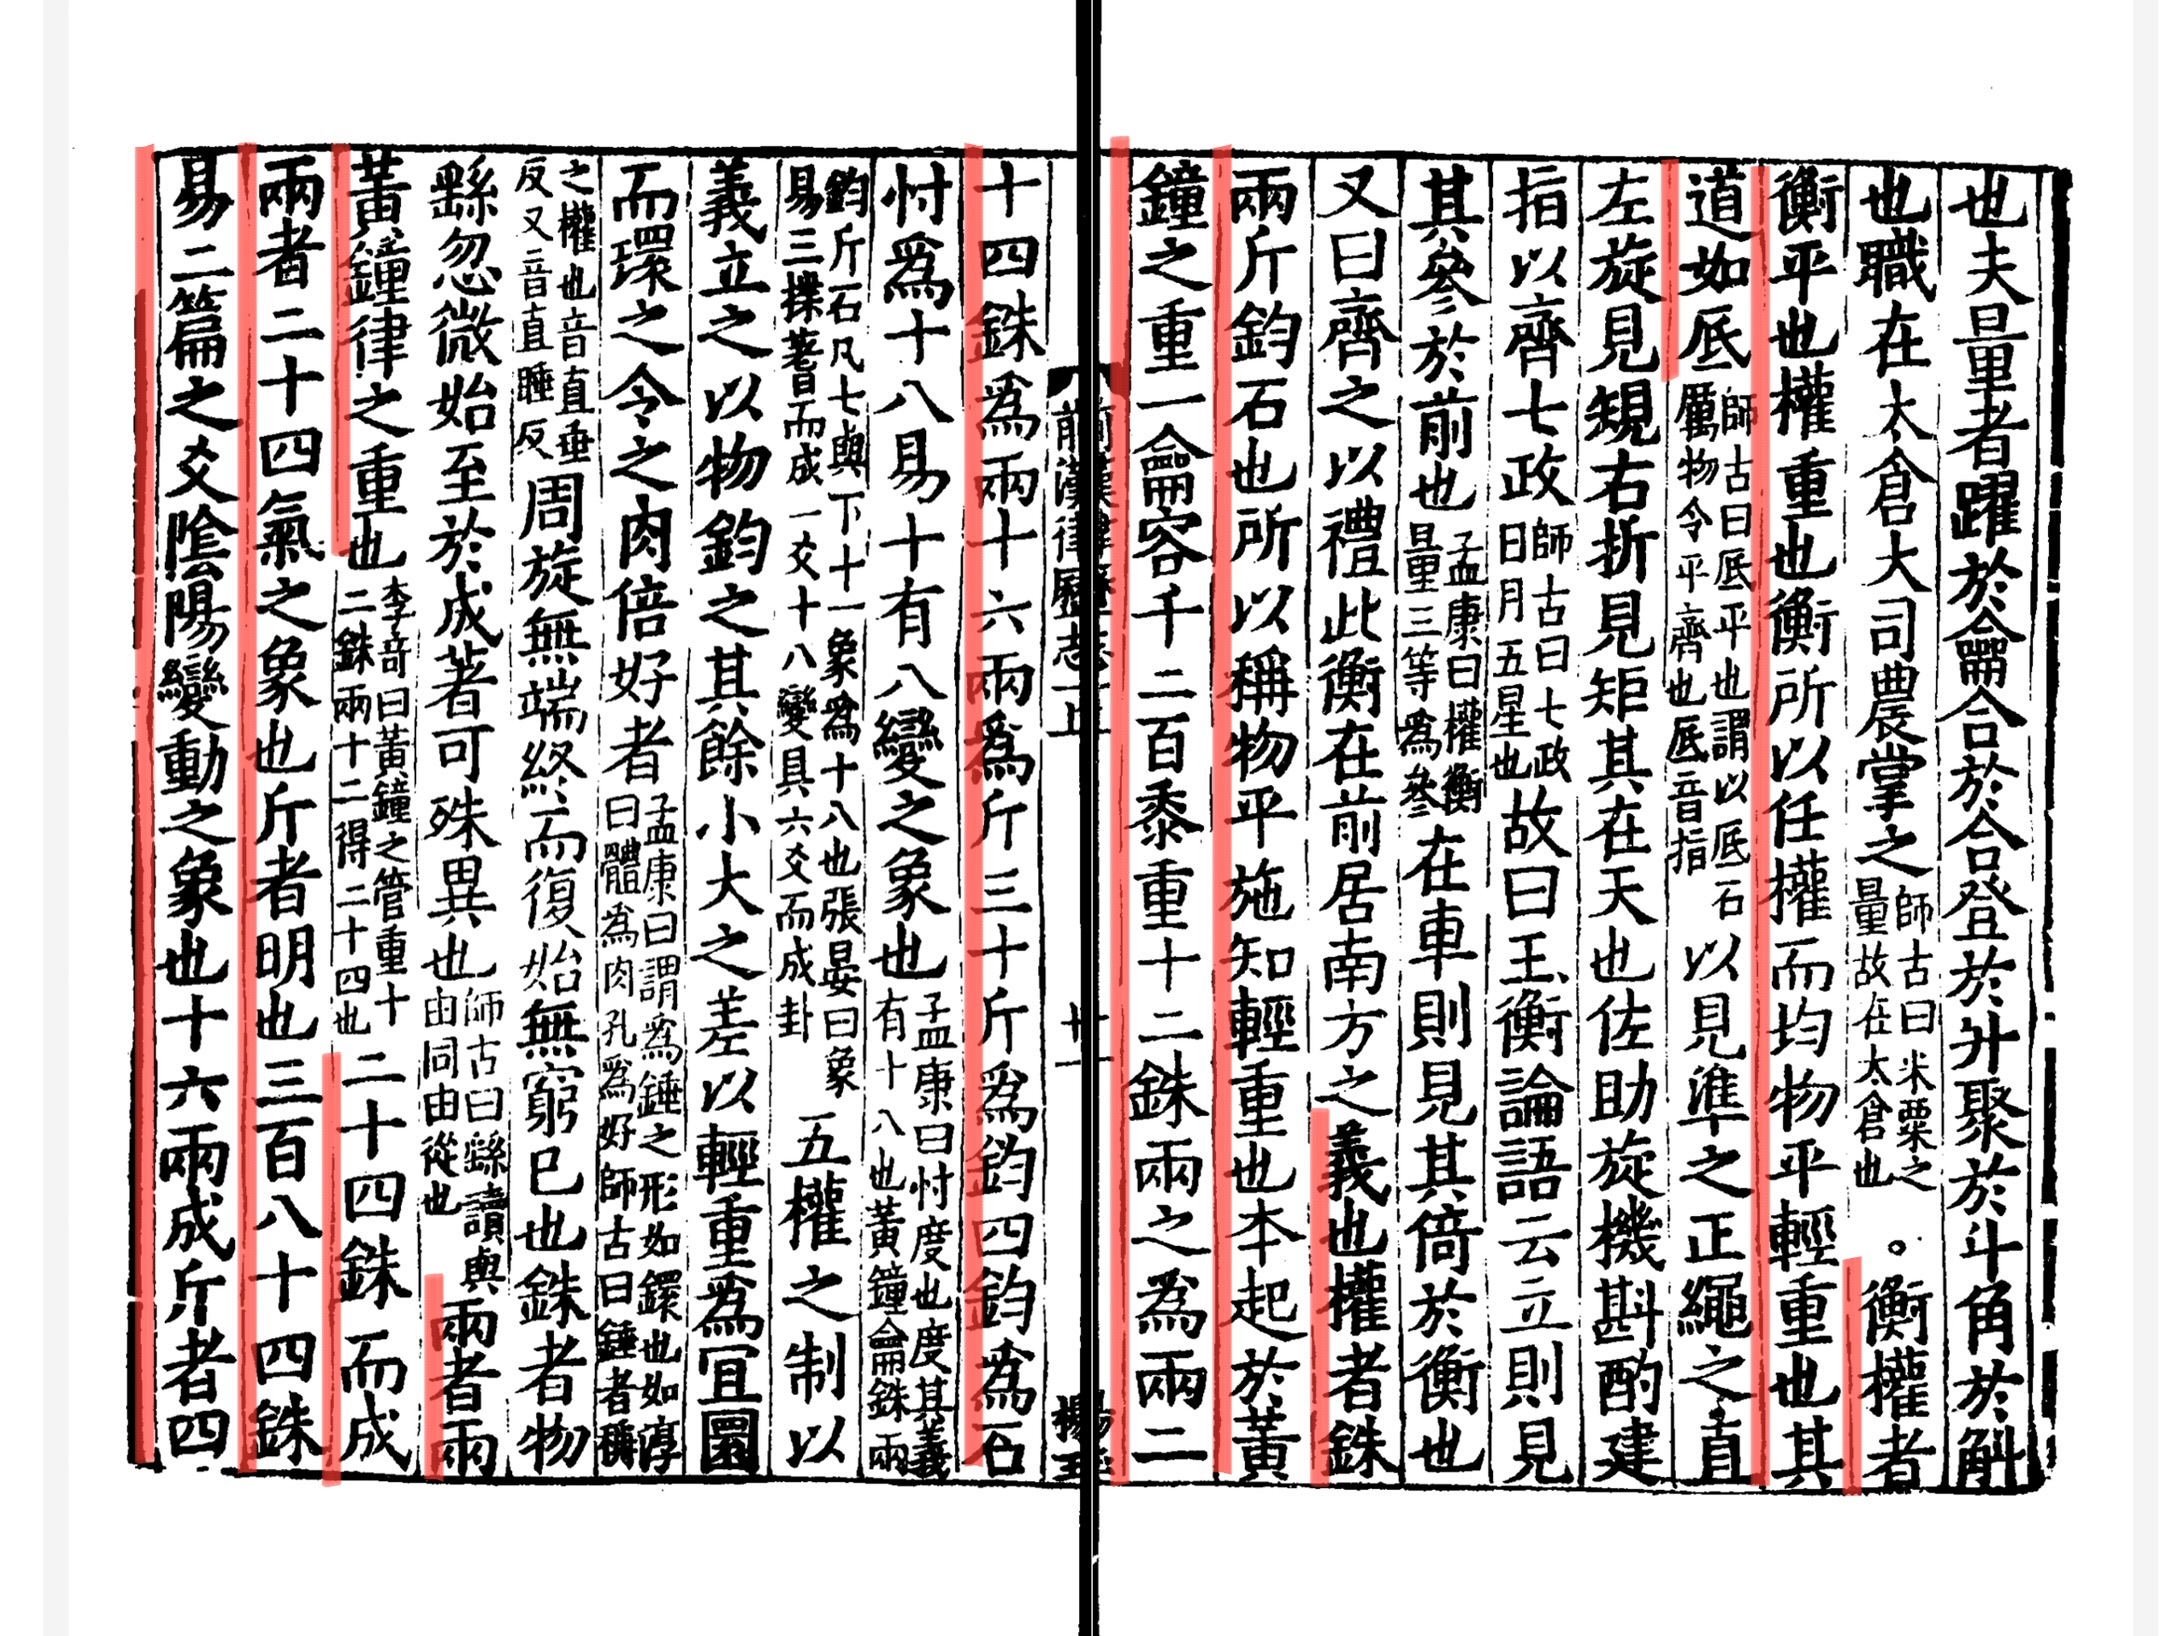 也夫量者躍於龠合於合登於升聚於斗角於斛
也職在太倉大司農掌之師古曰米粟之量故在太倉也。衡權者
衡平也權重也衡所以任權而均物平輕重也其
道如厎師古曰厎平也謂以厎石厲物令平齊也厎音指以見準之正繩之直
左旋見規右折見矩其在天也佐助旋機斟酌建
指以齊七政師古曰七政日月五星也故曰玉衡論語云立則見
其參於前也孟康曰權衡量三等爲參在車則見其倚於衡也
又曰齊之以禮此衡在前居南方之義也權者銖
兩斤鈞石也所以稱物平施知輕重也本起於黃
鐘之重一龠容千二百黍重十二銖兩之爲兩二
前漢律歷志一上 廿一
十四銖爲兩十六兩爲斤三十斤爲鈞四鈞爲石
忖爲十八易十有八變之象也孟康曰忖度也度其義有十八也黃鐘龠銖兩
鈞斤石凡七與下十一象爲十八也張晏曰象易三揲蓍而成一爻十八變具六爻而成卦五權之制以
義立之以物鈞之其餘小大之差以輕重爲宜圜
而環之令之肉倍好者孟康曰謂爲錘之形如鐶也如淳曰體爲肉孔爲好師古曰錘者稱
之權也音直垂反又音直睡反周旋無端終而復始無窮已也銖者物
繇忽微始至於成著可殊異也師古曰繇讀與由同由從也兩者兩
黃鐘律之重也李奇曰黃鐘之管重十二銖兩十二得二十四也二十四銖而成
兩者二十四氣之象也斤者明也三百八十四銖
易二篇之爻陰陽變動之象也十六兩成斤者四